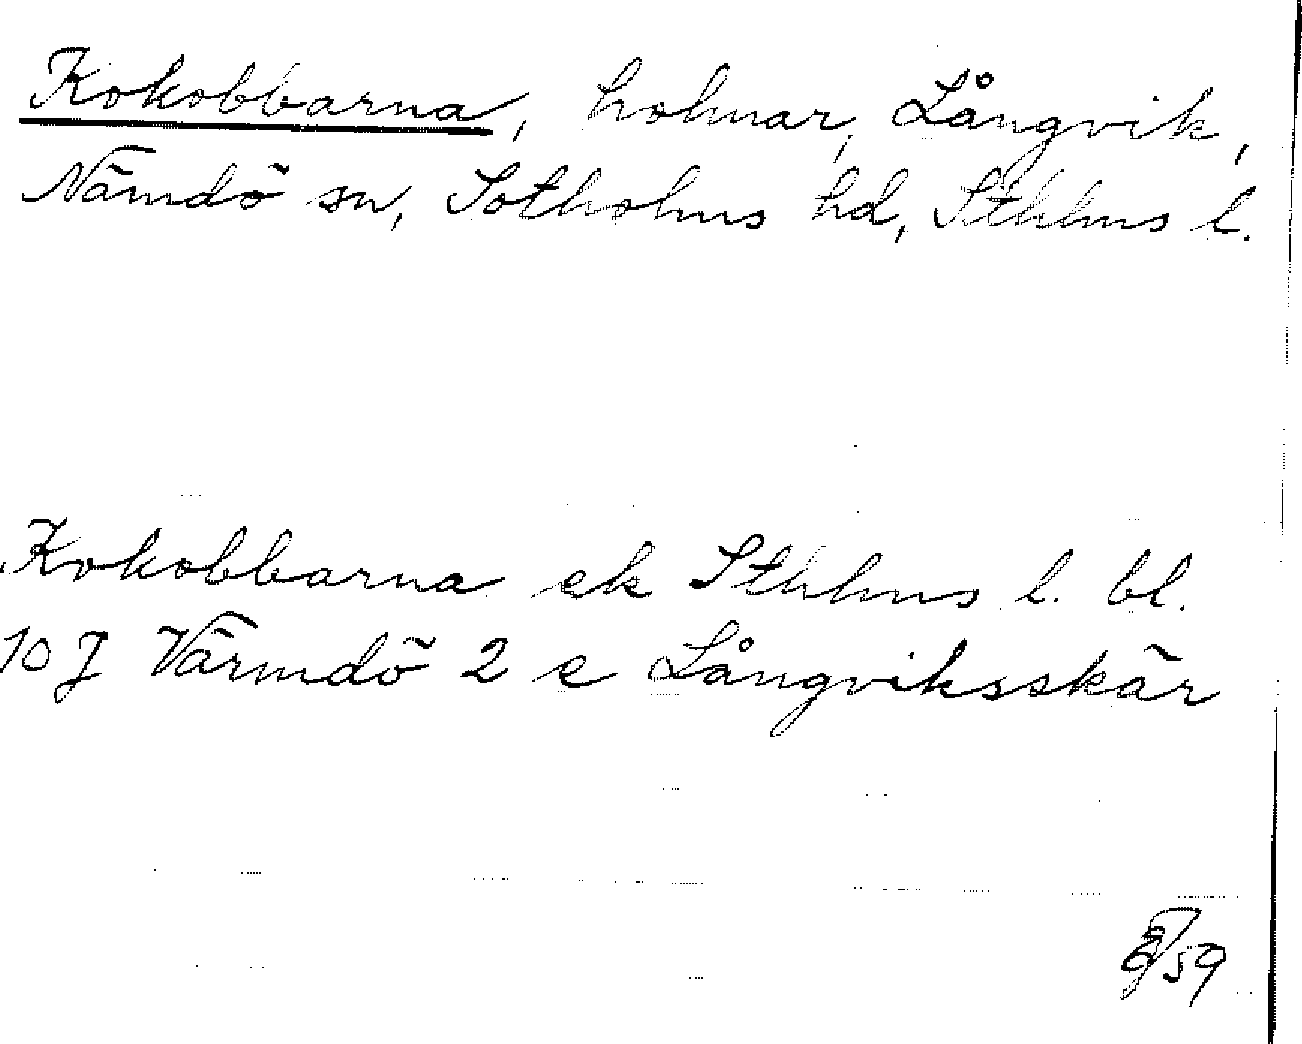 Kokobbarna, holmar, Långvik,
Nämdö sn, Sotholms hd, Sthlms l.
Kokobbarna ek Sthlms l. bl.
10 J Värmdö 2 e Långviksskär
/59